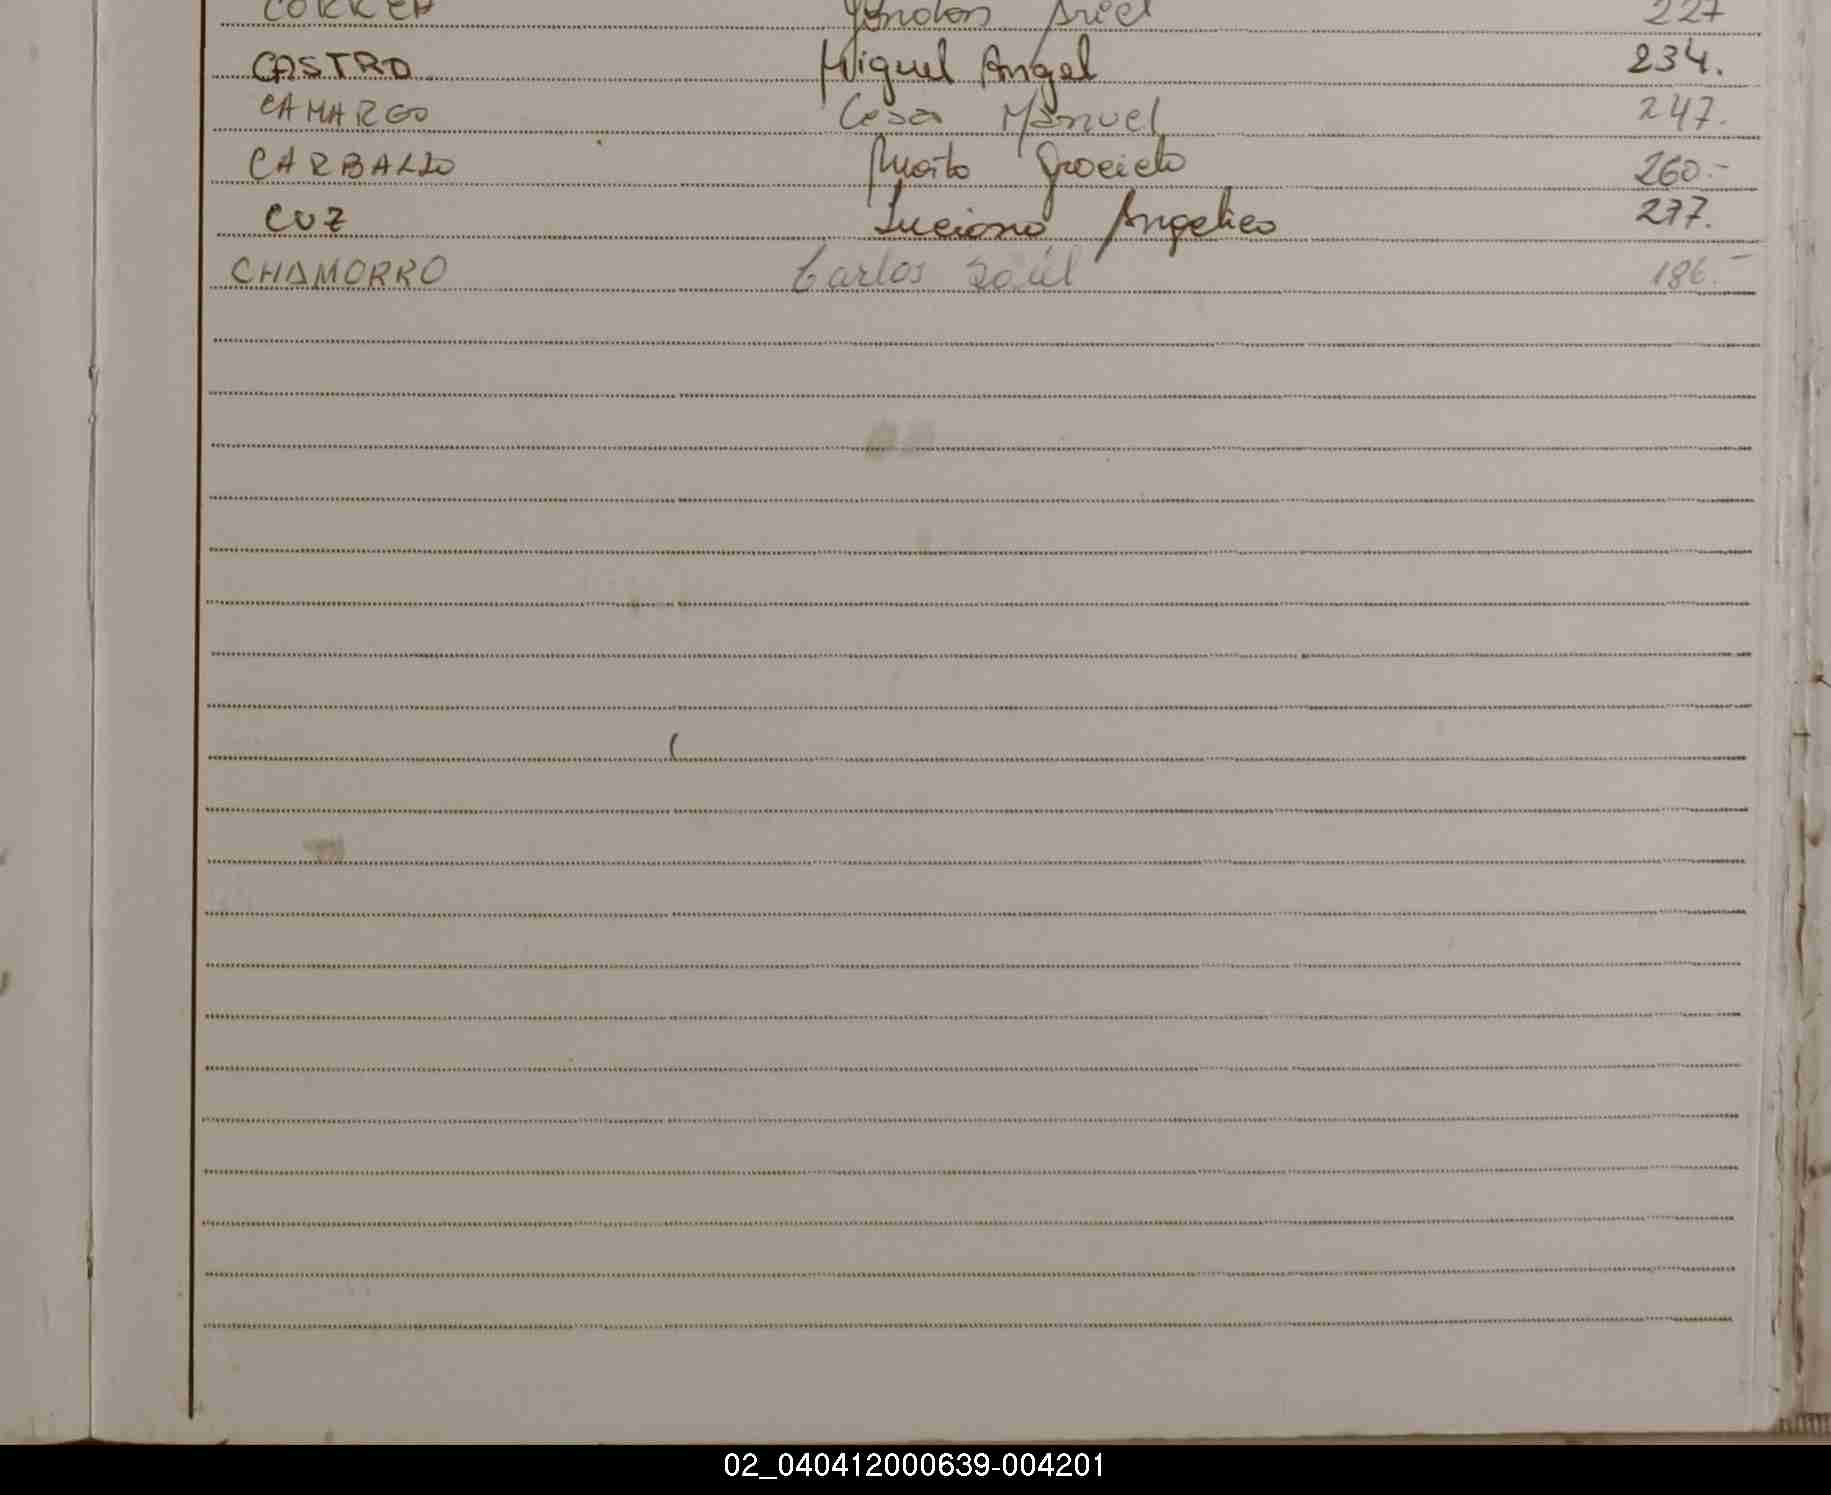 CORREA Ariel 227
CASTRO Miguel Angel 234.
CAMARGO Cesar Manuel 247.
CARBALLO Graciela 260.-
CUZ Luciano Angelico 277.
CHAMORRO Carlos Saúl 186.-
02_040412000639-004201